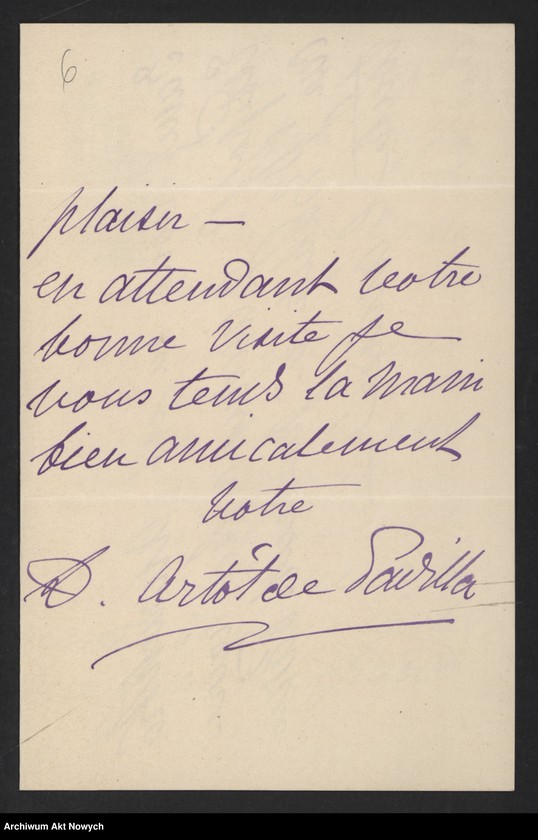 6
plaisir —
en attendant votre
bonne visite je
vous tends la main
bien amicalement
votre
D. Artôt de Padilla
Archiwum Akt Nowych